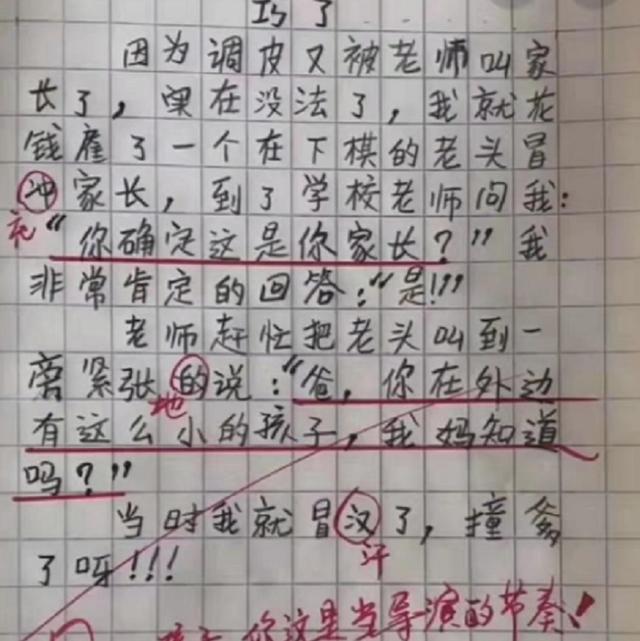 巧了
因为调皮又被老师叫家
长了，实在没法了，我就花
钱雇了一个在下棋的老头冒
冲家长，到了学校老师问我：
充
“你确定这是你家长？”我
非常肯定的回答：“是!!!”
老师赶忙把老头叫到一
旁紧张的说：“爸，你在外边
地
有这么小的孩子，我妈知道
吗？”
当时我就冒汉了，撞爹
汗
了呀!!!
你这是当导演的节奏!